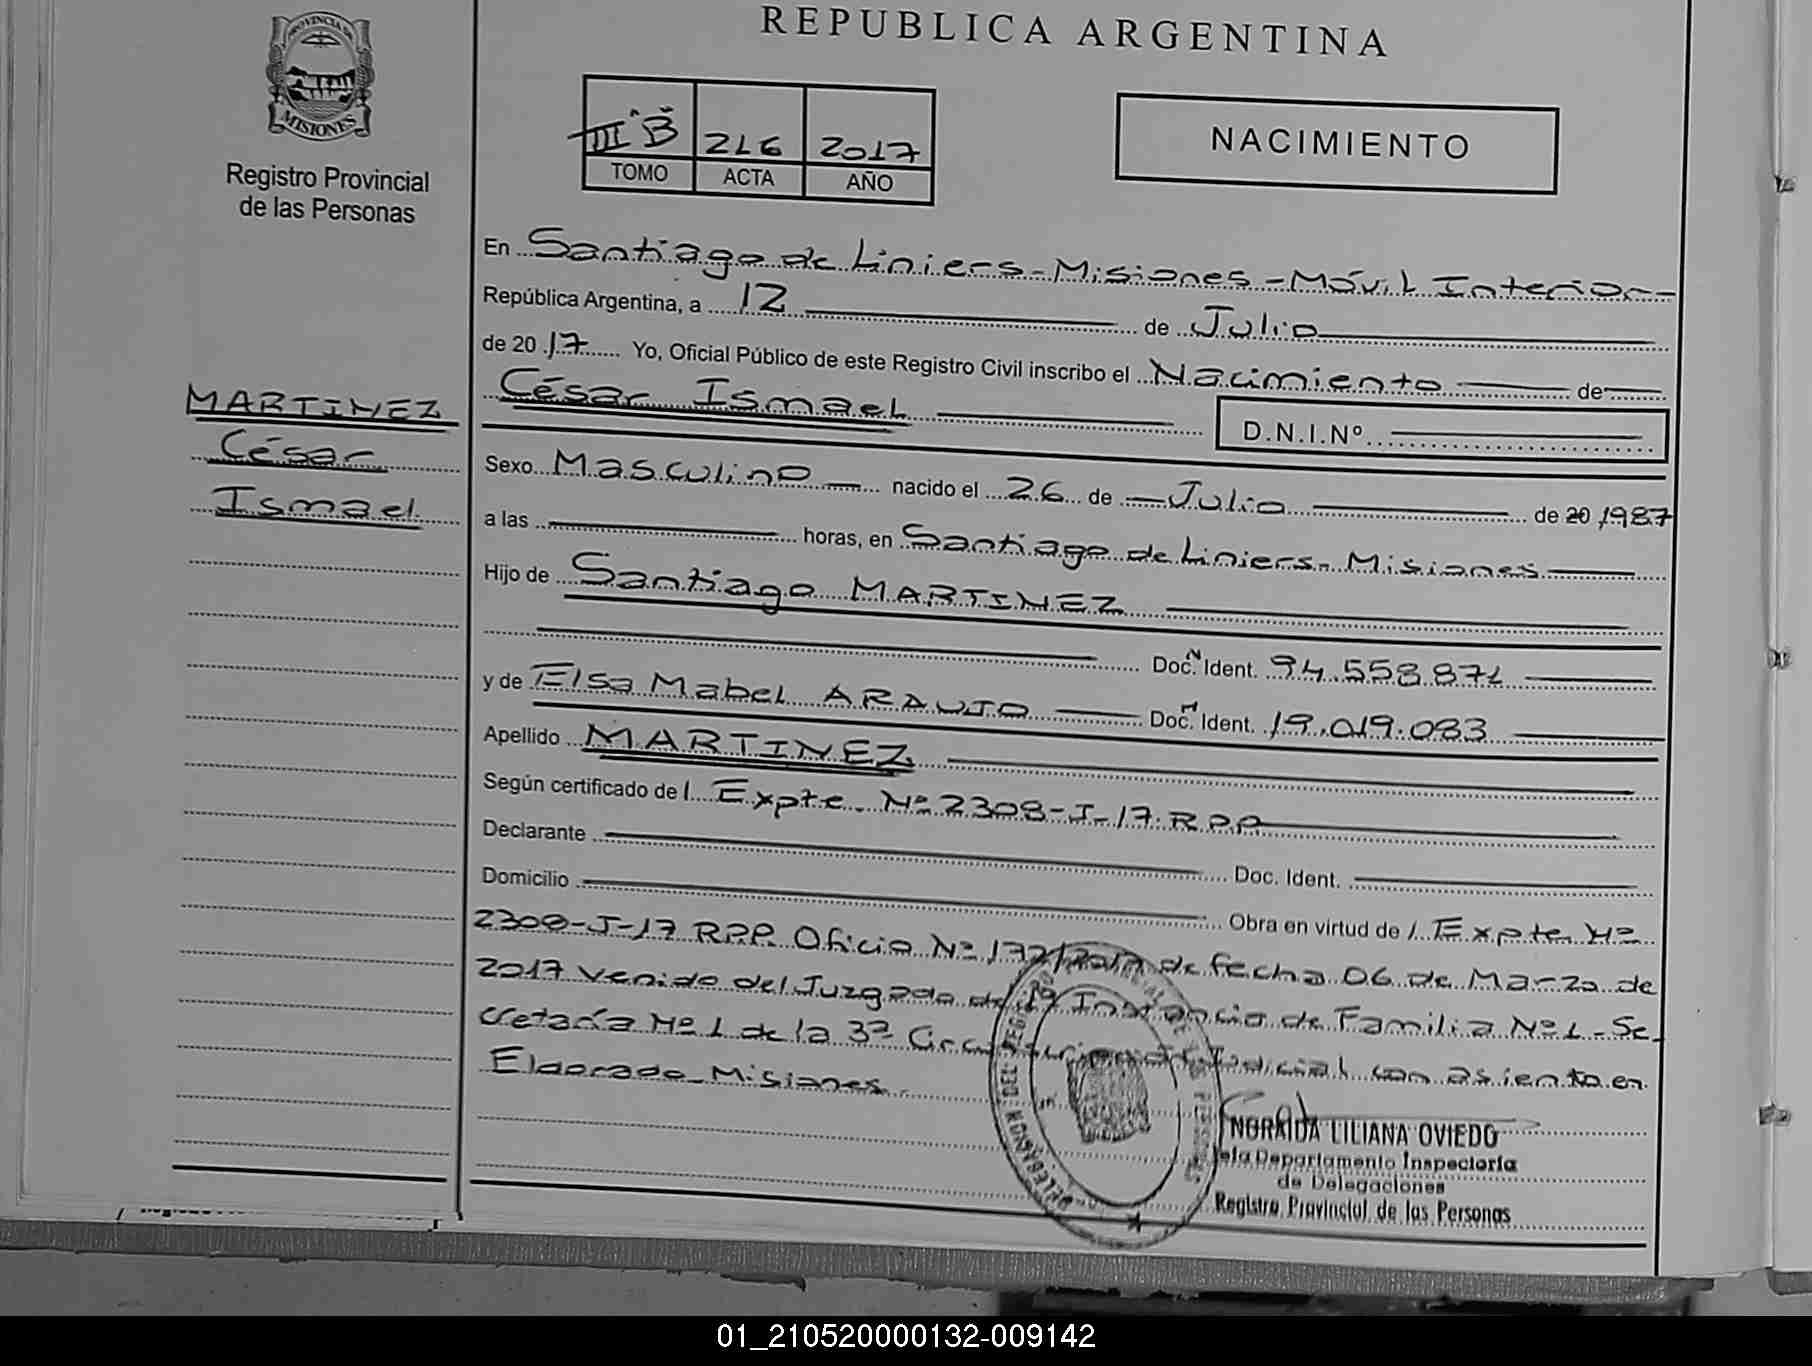 REPUBLICA ARGENTINA
PROVINCIA DE
MISIONES
Registro Provincial
de las Personas
III "B" 216 2017
TOMO ACTA AÑO
NACIMIENTO
En Santiago de Liniers - Misiones - Móvil Interior -
República Argentina, a 12 de Julio
de 2017 Yo, Oficial Público de este Registro Civil inscribo el Nacimiento de
César Ismael D.N.I.Nº
MARTINEZ
César
Ismael
Sexo Masculino nacido el 26 de Julio de 20 1987
a las horas, en Santiago de Liniers - Misiones
Hijo de Santiago MARTINEZ
Doc. Ident. 94.558.871
y de Elsa Mabel ARAUJO Doc. Ident. 19.019.083
Apellido MARTINEZ
Según certificado de / Expte. Nº 2308-J-17. R.P.P.
Declarante Doc. Ident.
Domicilio Obra en virtud de / Expte Nº
2308-J-17 R.P.P. Oficio Nº 172/2017 de fecha 06 de Marzo de
2017 venido del Juzgado de 1ª Instancia de Familia Nº 1 - Se-
cretaría Nº 1 de la 3ª Circunscripción Judicial con asiento en
Eldorado - Misiones.
NORAIDA LILIANA OVIEDO
Jefa Departamento Inspectoría
de Delegaciones
Registro Provincial de las Personas
01_210520000132-009142